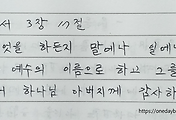 서 3장 17절
엇을 하든지 말에나 일에나
예수의 이름으로 하고 그를
서 하나님 아버지께 감사하
https://onedayb